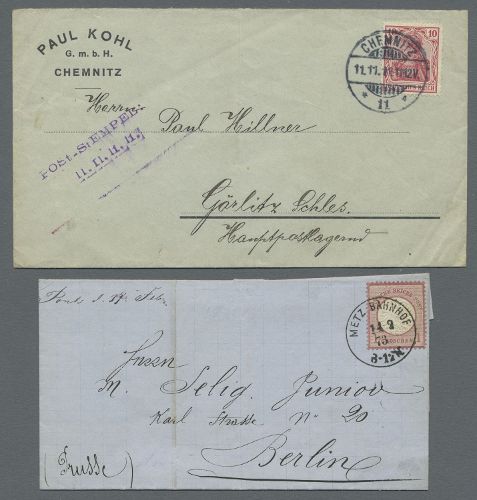 PAUL KOHL
G. m. b. H.
CHEMNITZ
CHEMNITZ
11.11.11.11-12V.
* 11 *
10
Herrn
Paul Hillner
POST-STEMPEL:
11.11.11.11.
Görlitz Schles.
Hauptpostlagernd
METZ BAHNHOF
14 2
73
8-12N
M. Selig Junior
Karl Strasse No 20
Berlin
(Prusse)